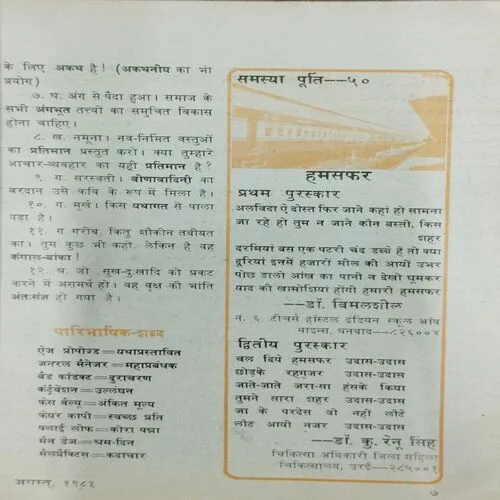 के लिए अकथ है! (अकथनीय का भी
प्रयोग)
७. घ. अंग से पैदा हुआ। समाज के
सभी अंगभूत तत्त्वों का समुचित विकास
होना चाहिए।
८. ख. नमूना। नव-निर्मित वस्तुओं
का प्रतिमान प्रस्तुत करो। क्या तुम्हारे
आचार-व्यवहार का यही प्रतिमान है?
९. ग. सरस्वती। वीणावादिनी का
वरदान उसे कवि के रूप में मिला है।
१०. ग. मूर्ख। किस यथागत से पाला
पड़ा है।
११. ग. गरीब, किंतु शौकीन तबीयत
का। तुम कुछ भी कहो, लेकिन है वह
कंगाल-बांका!
१२. घ. जो सुख-दुःखादि को प्रकट
करने में असमर्थ हो। वह वृक्ष की भांति
अंतःसंज्ञ हो गया है।
पारिभाषिक-शब्द
ऐज प्रोपोज्ड=यथाप्रस्तावित
जनरल मैनेजर=महाप्रबंधक
बैड कांडक्ट=दुराचरण
कंट्रवेंशन=उल्लंघन
फेस वैल्यू=अंकित मूल्य
फेयर कापी=स्वच्छ प्रति
फ्लाई लीफ=कोरा पन्ना
मैन डेज=श्रम-दिन
मैलप्रैक्टिस=कदाचार
अगस्त, १९८३
समस्या पूर्ति—५०
हमसफर
प्रथम पुरस्कार
अलविदा ऐ दोस्त फिर जाने कहां हो सामना
जा रहे हो तुम न जाने कौन बस्ती, किस
शहर
दरमियां बस एक पटरी चंद डब्बे हैं तो क्या
दूरियां इनमें हजारों मील की आयीं उभर
पोंछ डालो आंख का पानी न देखो घूमकर
याद की खामोशियां होंगी हमारी हमसफर
—डॉ. विमलशील
न. ६. टीचर्स हॉस्टल इंडियन स्कूल ऑव
माइन्स, धनबाद—८२६००४
द्वितीय पुरस्कार
चल दिये हमसफर उदास-उदास
छोड़के रहगुजर उदास-उदास
जाते-जाते जरा-सा हंसके किया
तुमने सारा शहर उदास-उदास
जा के परदेस वो नहीं लौटे
लौट आयी नजर उदास-उदास
—डॉ. कु. रेनू सिंह
चिकित्सा अधिकारी जिला महिला
चिकित्सालय, उरई—२८५००१
७